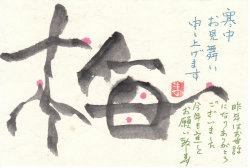 寒中
お見舞い
申し上げます
梅
昨年はお世話
になりありがとう
ございました
今年も宜しく
お願い致します